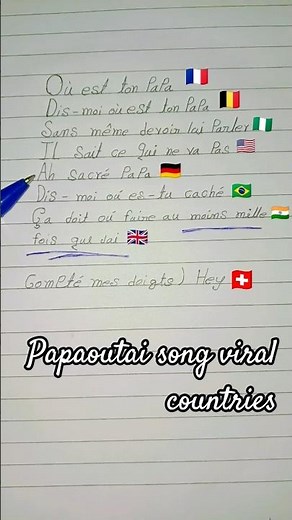 Où est ton Papa 🇫🇷
Dis-moi où est ton Papa 🇧🇪
Sans même devoir lui Parler 🇳🇬
IL Sait ce qui ne va Pas 🇺🇸
Ah Sacré Papa 🇩🇪
Dis-moi où es-tu caché 🇧🇷
Ça doit où faire au moins mille 🇮🇳
fois que Jai 🇬🇧
Compté mes doigts) Hey 🇨🇭
Papaoutai song viral
countries